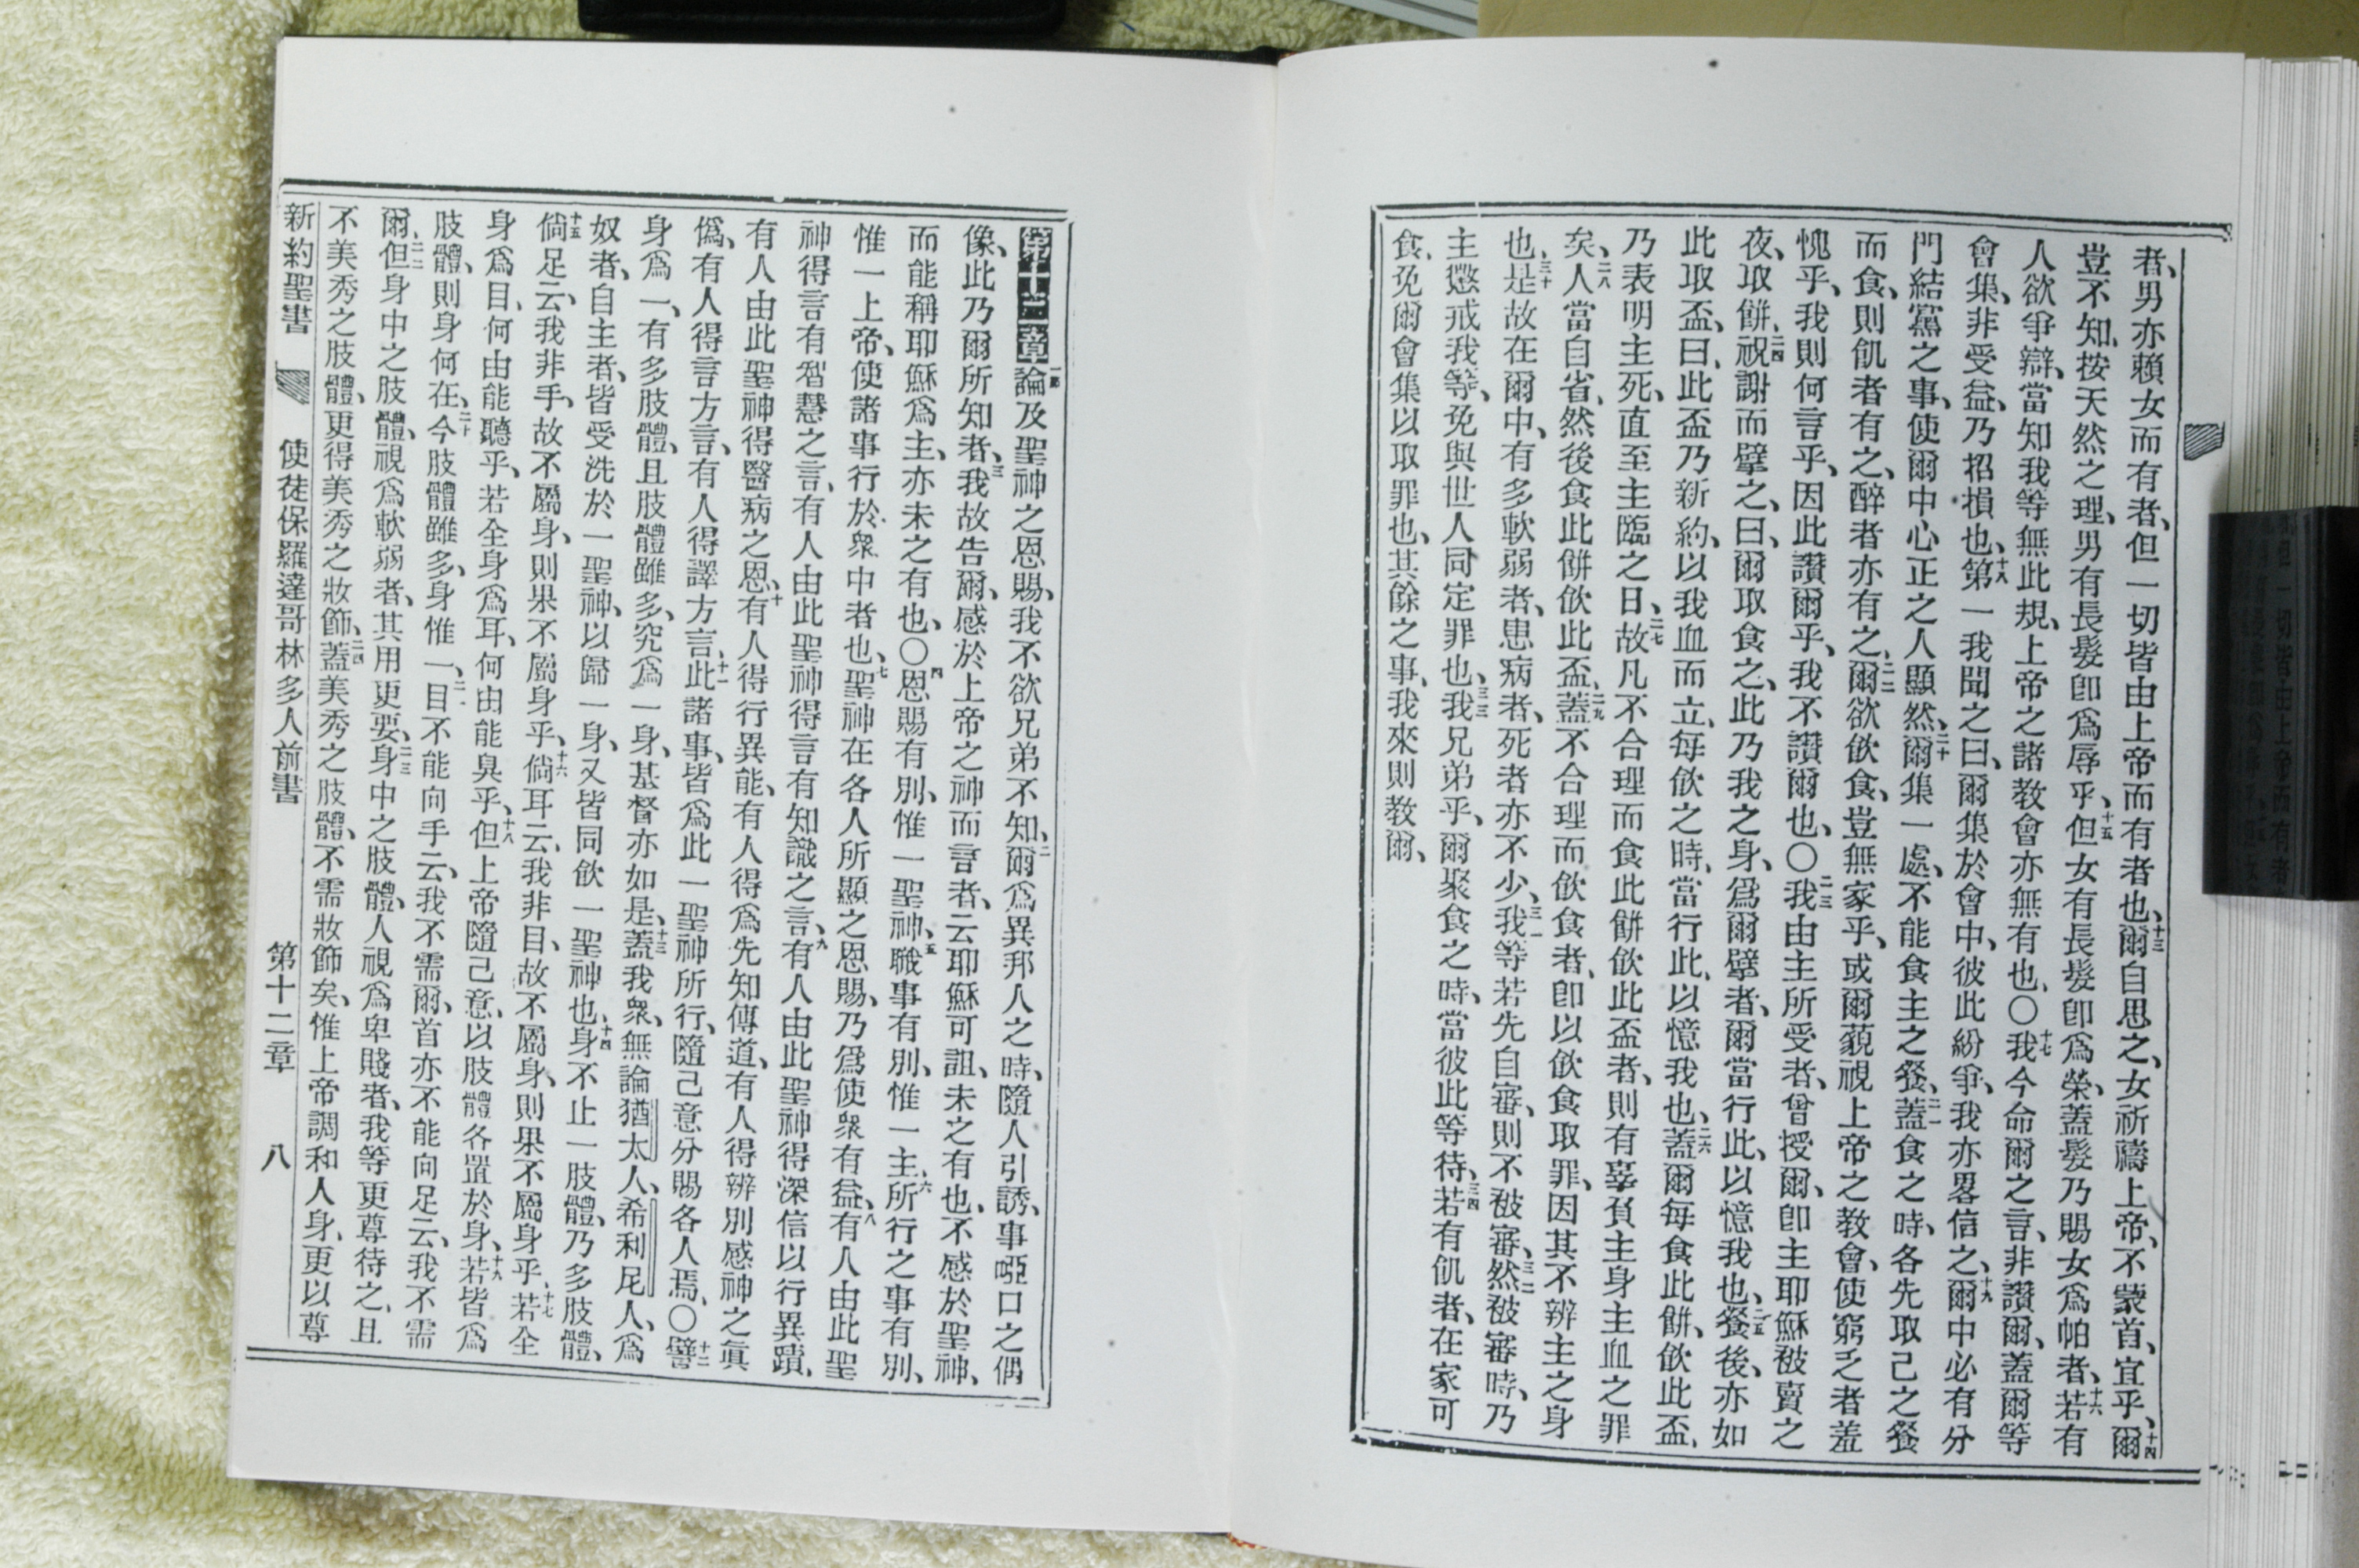 者、男亦賴女而有者、但一切皆由上帝而有者也、十三爾自思之、女祈禱上帝、不蒙首、宜乎、十四爾
豈不知、按天然之理、男有長髮卽爲辱乎、十五但女有長髮卽爲榮、蓋髮乃賜女爲帕者、十六若有
人欲爭辯、當知我等無此規、上帝之諸教會亦無有也、〇十七我今命爾之言、非讚爾、蓋爾等
會集、非受益、乃招損也、十八第一我聞之曰、爾集於會中、彼此紛爭、我亦畧信之、十九爾中必有分
門結黨之事、使爾中心正之人顯然、二十爾集一處、不能食主之餐、二一蓋食之時、各先取己之餐
而食、則飢者有之、醉者亦有之、二二爾欲飲食、豈無家乎、或爾藐視上帝之教會、使窮乏者羞
愧乎、我則何言乎、因此讚爾乎、我不讚爾也、〇二三我由主所受者、曾授爾、卽主耶穌被賣之
夜、取餅、二四祝謝而擘之、曰、爾取食之、此乃我之身、爲爾擘者、爾當行此、以憶我也、二五餐後、亦如
此取盃、曰、此盃乃新約、以我血而立、每飲之時、當行此、以憶我也、二六蓋爾每食此餅、飲此盃、
乃表明主死、直至主臨之日、二七故凡不合理而食此餅飲此盃者、則有辜負主身主血之罪
矣、二八人當自省、然後食此餅飲此盃、二九蓋不合理而飲食者、卽以飲食取罪、因其不辨主之身
也、三十是故在爾中、有多軟弱者、患病者、死者亦不少、三一我等若先自審、則不被審、三二然被審時、乃
主懲戒我等、免與世人同定罪也、三三我兄弟乎、爾聚食之時、當彼此等待、三四若有飢者、在家可
食、免爾會集以取罪也、其餘之事、我來則教爾、
第十二章一節論及聖神之恩賜、我不欲兄弟不知、二爾爲異邦人之時、隨人引誘、事啞口之偶
像、此乃爾所知者、三我故告爾、感於上帝之神而言者、云耶穌可詛、未之有也、不感於聖神、
而能稱耶穌爲主、亦未之有也、〇四恩賜有別、惟一聖神、五職事有別、惟一主、六所行之事有別、
惟一上帝、使諸事行於衆中者也、七聖神在各人所顯之恩賜、乃爲使衆有益、八有人由此聖
神得言有智慧之言、有人由此聖神得言有知識之言、九有人由此聖神得深信以行異蹟、
有人由此聖神得醫病之恩、十有人得行異能、有人得爲先知傳道、有人得辨別感神之眞
僞、有人得言方言、有人得譯方言、十一此諸事、皆爲此一聖神所行、隨己意分賜各人焉、〇十二譬
身爲一、有多肢體、且肢體雖多、究爲一身、基督亦如是、十三蓋我衆、無論猶太人、希利尼人、爲
奴者、自主者、皆受洗於一聖神、以歸一身、又皆同飲一聖神也、十四身不止一肢體、乃多肢體、
十五倘足云、我非手、故不屬身、則果不屬身乎、十六倘耳云、我非目、故不屬身、則果不屬身乎、十七若全
身爲目、何由能聽乎、若全身爲耳、何由能臭乎、十八但上帝隨己意、以肢體各置於身、十九若皆爲
肢體、則身何在、二十今肢體雖多、身惟一、二一目不能向手云、我不需爾、首亦不能向足云、我不需
爾、二二但身中之肢體、視爲軟弱者、其用更要、二三身中之肢體、人視爲卑賤者、我等更尊待之、且
不美秀之肢體、更得美秀之妝飾、二四蓋美秀之肢體、不需妝飾矣、惟上帝調和人身、更以尊
新約聖書 使徒保羅達哥林多人前書 第十二章 八